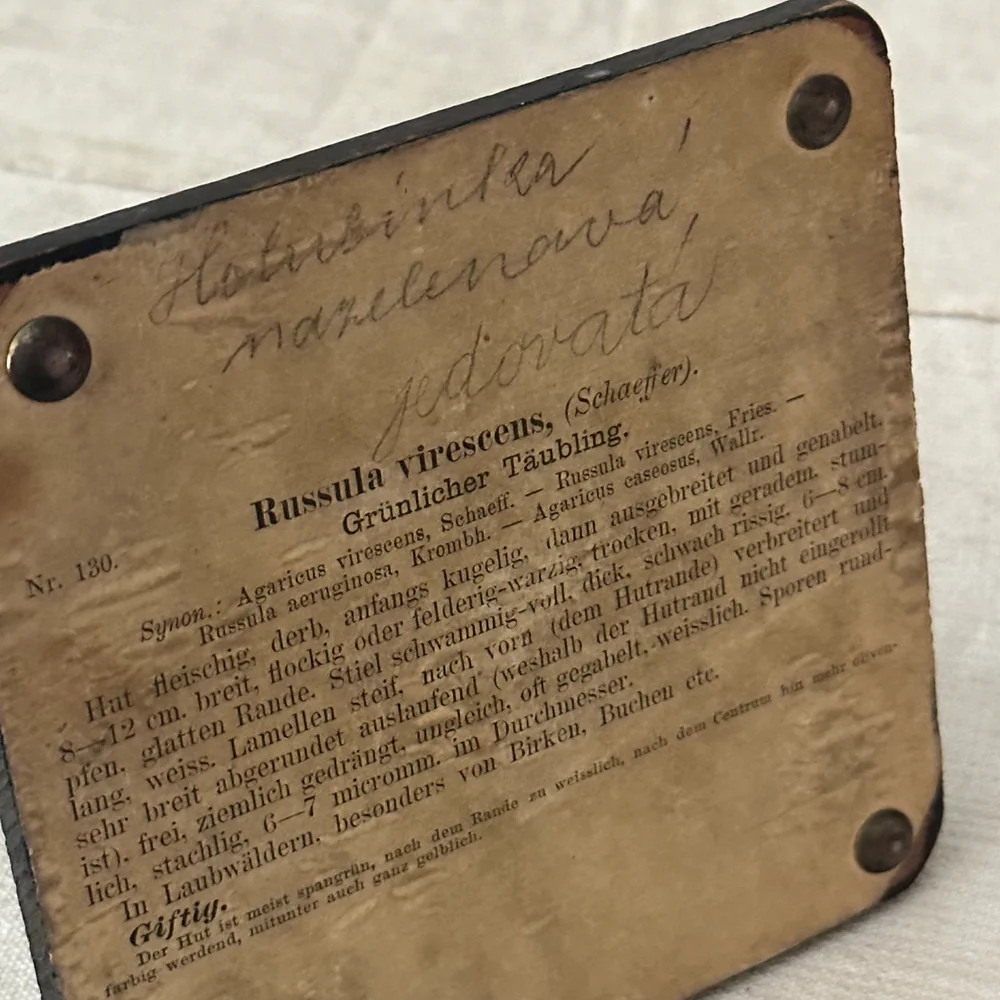 Holubinka
nazelenavá,
jedovatá
Russula virescens, (Schaeffer).
Grünlicher Täubling.
Nr. 130.
Synon.: Agaricus virescens, Schaeff. — Russula virescens, Fries. —
Russula aeruginosa, Krombh. — Agaricus caseosus, Wallr.
Hut fleischig, derb, anfangs kugelig, dann ausgebreitet und genabelt,
8—12 cm. breit, flockig oder felderig-warzig, trocken, mit geradem, stum-
pfen, glatten Rande. Stiel schwammig-voll, dick, schwach rissig, 6—8 cm.
lang, weiss. Lamellen steif, nach vorn (dem Hutrande) verbreitert und
sehr breit abgerundet auslaufend (weshalb der Hutrand nicht eingerollt
ist), frei, ziemlich gedrängt, ungleich, oft gegabelt, weisslich. Sporen rund-
lich, stachlig, 6—7 micromm. im Durchmesser.
In Laubwäldern, besonders von Birken, Buchen etc.
Giftig.
Der Hut ist meist spangrün, nach dem Rande zu weisslich, nach dem Centrum hin mehr
farbig werdend, mitunter auch ganz gelblich.